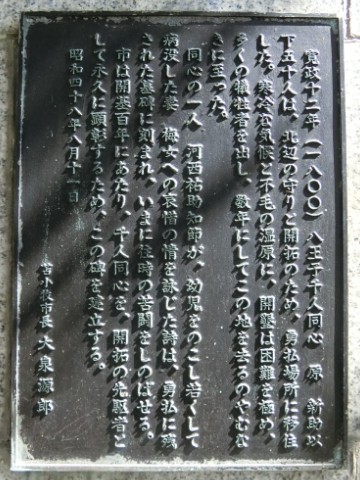 寛政十二年(一八〇〇)八王子千人同心 原 新助以
下五十人は、北辺の守りと開拓のため、勇払場所に移住
した。寒冷な気候と不毛の湿原に、開墾は困難を極め、
多くの犠牲者を出し、数年にしてこの地を去るのやむな
きに至った。
同心の一人 河西祐助知節が、幼児をのこし若くして
病没した妻 梅女への哀惜の情を詠じた詩は、勇払に残
された墓碑に刻まれ、いまに往時の苦闘をしのばせる。
市は開基百年にあたり、千人同心を、開拓の先駆者と
して永久に顕彰するため、この碑を建立する。
昭和四十八年八月十一日
苫小牧市長 大泉源郎